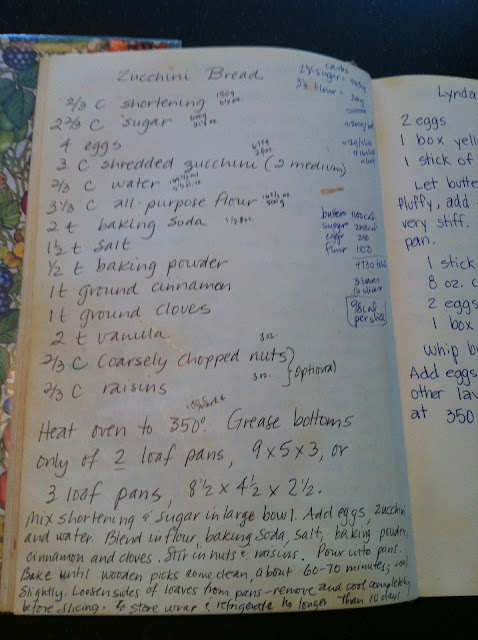 Zucchini Bread
2/3 C shortening
2 2/3 C sugar
4 eggs
3 C shredded zucchini (2 medium)
2/3 C water
3 1/3 C all-purpose flour
2 t baking soda
1 1/2 t salt
1/2 t baking powder
1 t ground cinnamon
1 t ground cloves
2 t vanilla
2/3 C coarsely chopped nuts } 3 oz.
2/3 C raisins 3 oz. } (optional)
Heat oven to 350°. Grease bottoms
only of 2 loaf pans, 9x5x3, or
3 loaf pans, 8 1/2 x 4 1/2 x 2 1/2.
Mix shortening & sugar in large bowl. Add eggs, zucchini
and water. Blend in flour, baking soda, salt, baking powder,
cinnamon and cloves. Stir in nuts & raisins. Pour into pans.
Bake until wooden picks come clean, about 60-70 minutes; cool
slightly. Loosen sides of loaves from pans - remove and cool completely
before slicing. To store wrap & refrigerate no longer than 10 days.
carbs
sugar =
flour =
butter
sugar
eggs
flour
4730 total
3 loaves
16 slices
98 cal
per slice
Lynda
2 eggs
1 box yell
1 stick of
Let butte
fluffy, add
very stiff.
pan.
1 stick
8 oz. c
2 eggs
1 box
Whip bu
Add eggs
other lay
at 350